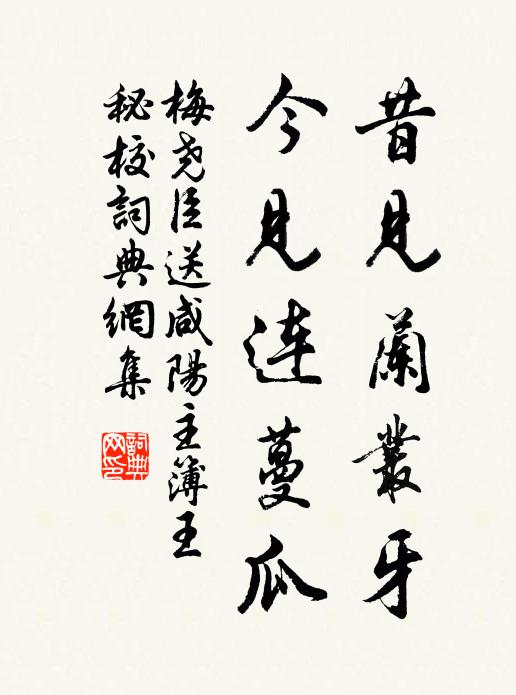 昔見蘭叢牙
今見連蔓瓜
梅堯臣送咸陽主簿王
秘校詞典網集
詞典网印